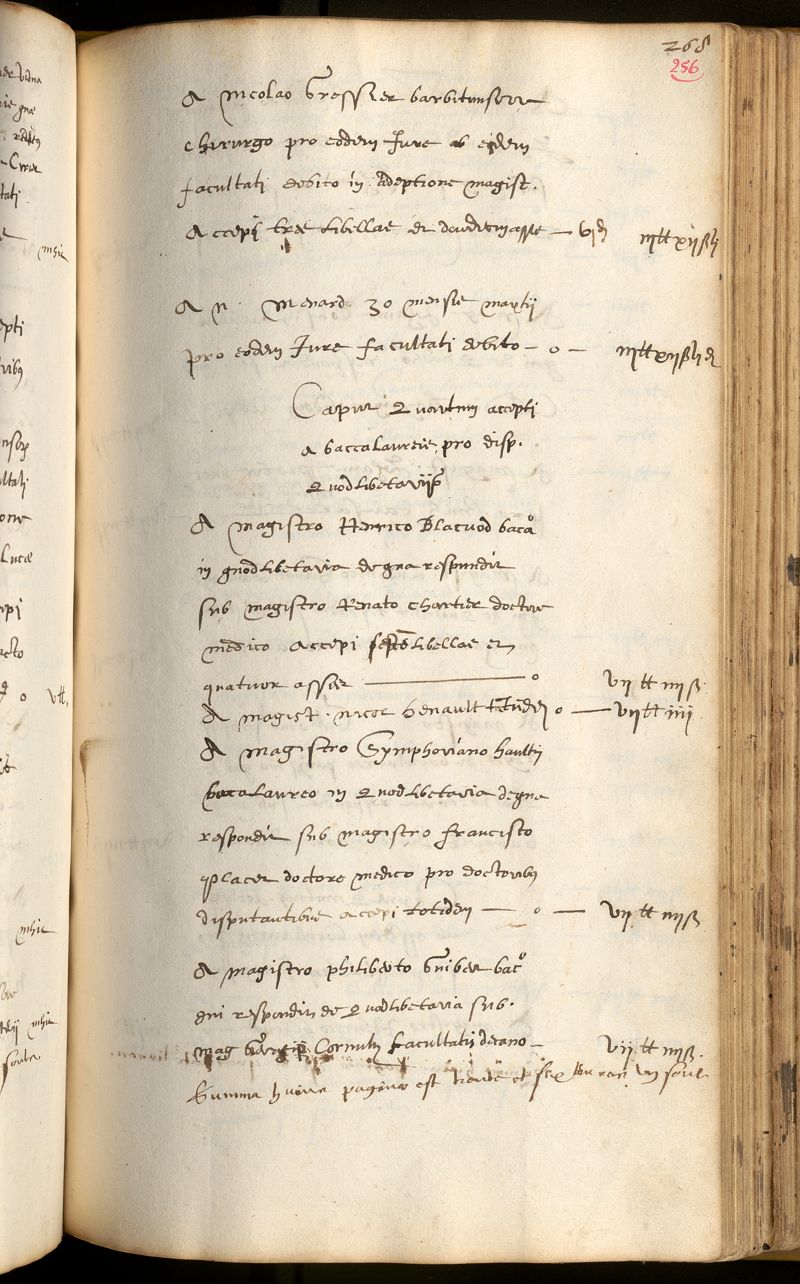 268
256
A Nicolao Gressier barbitonsore
chirurgo pro eodem Jure ab eisdem
facultati debito in Adeptione magist.
Accepi tres libellas et duodecim asses — vi d iii ₶ xii ß
A N. Menard 30 mensis martii
pro eodem Jure facultati debito — o — iii ₶ xii ß
Caput Quartum accepti
a baccalaureis pro disp.
Quodlibetariis
A magistro Henrico Blacuod baca
in quodlibetaria de qua respondit
sub magistro Renato Chartier doctore
medico Accepi septe libellas et
quatuor asses — o vii ₶ iiii ß
A magist. Nicol henault tantundem o — vii ₶ iiii
A magistro Symphoriano hautii
baccalaureo in Quodlibetaria de qua
respondit sub magistro francisco
Placet doctore medico pro doctoribus
disputantibus accepi totidem — o — vii ₶ iiii ß
A magistro philiberto Guiber bac
qui respondit de Quodlibetaria sub.
mag Cornuty facultatis decano — vii ₶ iiii ß.
Summa huius paginae est trente et six